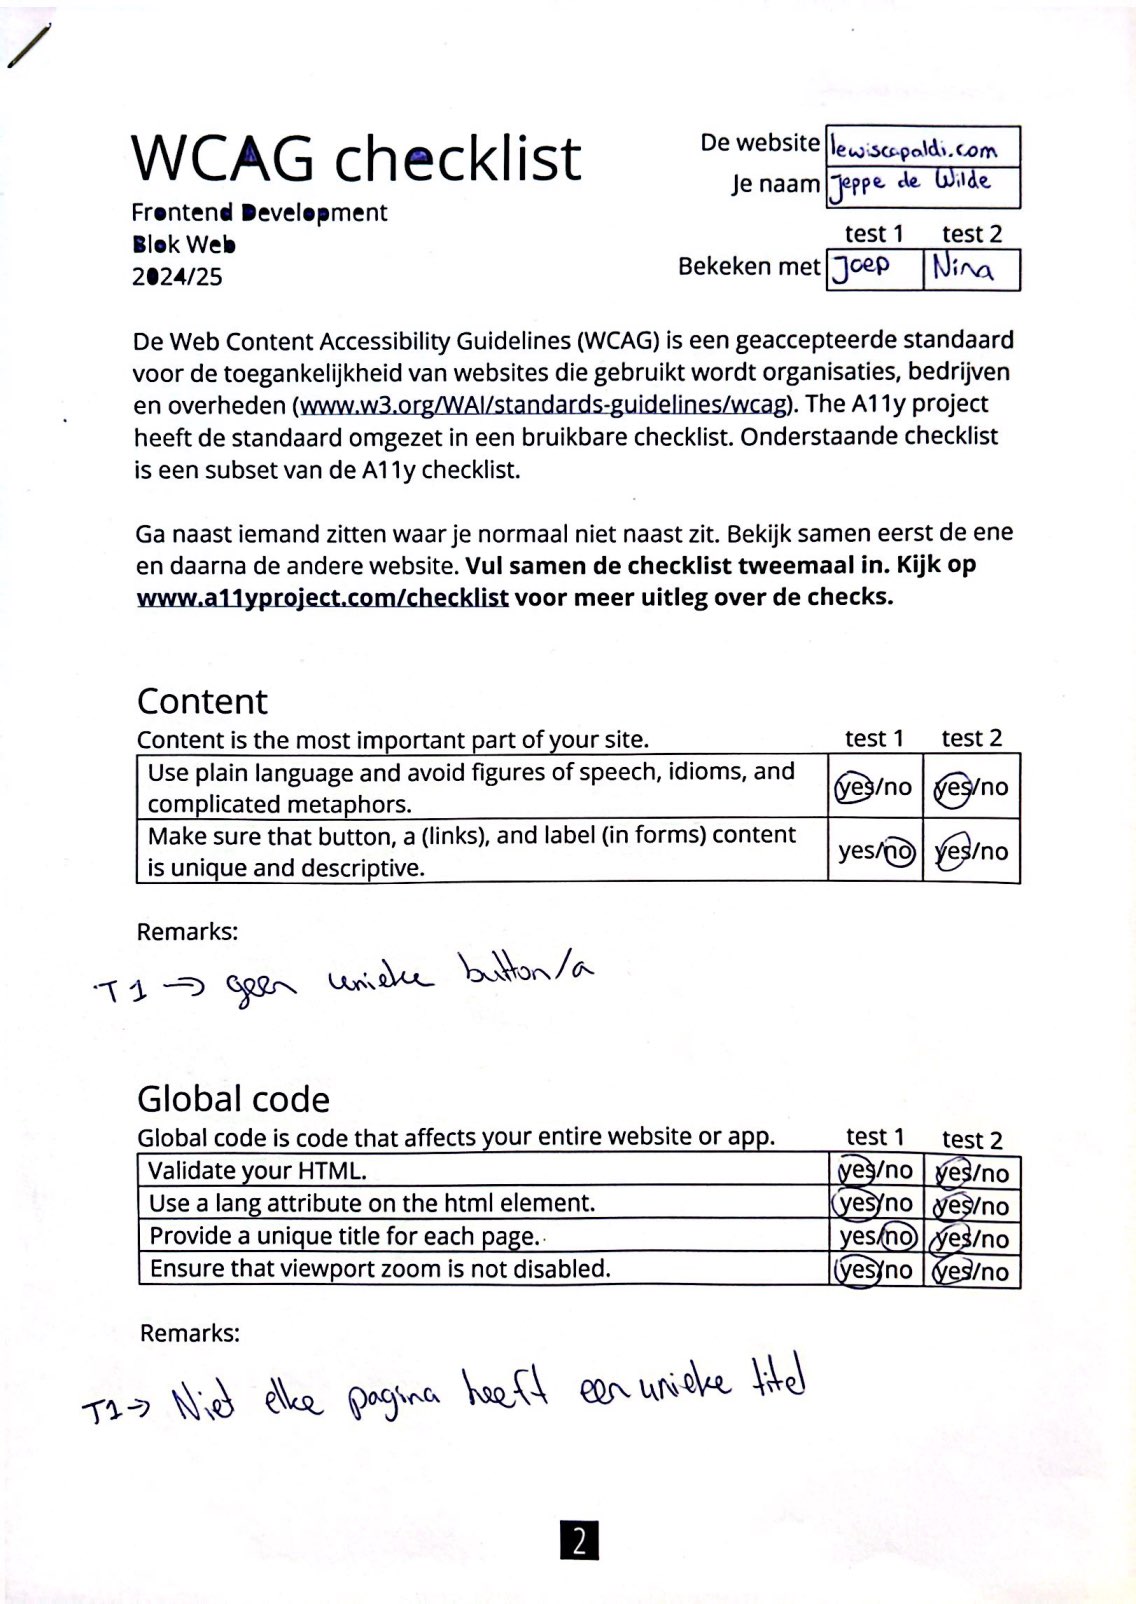 WCAG checklist
Frontend Development
Blok Web
2024/25
De website lewiscapaldi.com
Je naam Jeppe de Wilde
test 1 test 2
Bekeken met Joep Nina
De Web Content Accessibility Guidelines (WCAG) is een geaccepteerde standaard
voor de toegankelijkheid van websites die gebruikt wordt organisaties, bedrijven
en overheden (www.w3.org/WAI/standards-guidelines/wcag). The A11y project
heeft de standaard omgezet in een bruikbare checklist. Onderstaande checklist
is een subset van de A11y checklist.
Ga naast iemand zitten waar je normaal niet naast zit. Bekijk samen eerst de ene
en daarna de andere website. Vul samen de checklist tweemaal in. Kijk op
www.a11yproject.com/checklist voor meer uitleg over de checks.
Content
Content is the most important part of your site. test 1 test 2
Use plain language and avoid figures of speech, idioms, and
complicated metaphors. yes/no yes/no
Make sure that button, a (links), and label (in forms) content
is unique and descriptive. yes/no yes/no
Remarks:
T1 → geen unieke button/a
Global code
Global code is code that affects your entire website or app. test 1 test 2
Validate your HTML. yes/no yes/no
Use a lang attribute on the html element. yes/no yes/no
Provide a unique title for each page. yes/no yes/no
Ensure that viewport zoom is not disabled. yes/no yes/no
Remarks:
T1 → Niet elke pagina heeft een unieke titel
2